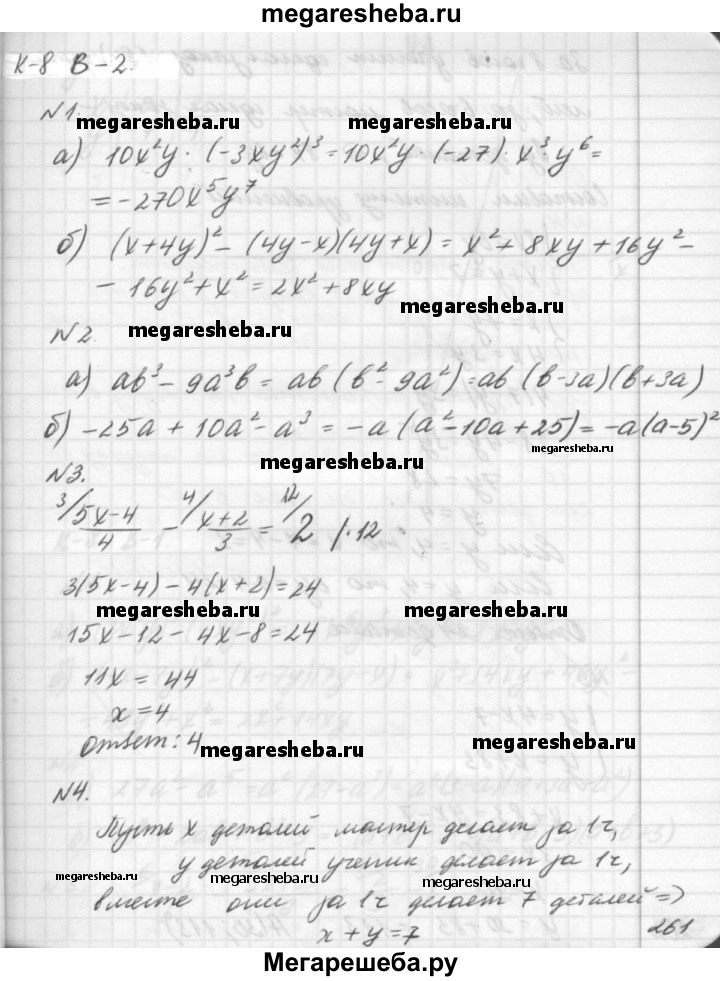 megaresheba.ru
К-8 В-2.
№1.
megaresheba.ru megaresheba.ru
а) 10x²y · (-3xy²)³ = 10x²y · (-27) · x³y⁶ =
= -270x⁵y⁷
б) (x+4y)² - (4y-x)(4y+x) = x² + 8xy + 16y² -
- 16y² + x² = 2x² + 8xy
megaresheba.ru
№2.
megaresheba.ru
а) ab³ - 9a³b = ab(b² - 9a²) = ab(b-3a)(b+3a)
б) -25a + 10a² - a³ = -a(a² - 10a + 25) = -a(a-5)²
megaresheba.ru megaresheba.ru
№3.
³/ (5x-4)/4 - ⁴/ (x+2)/3 = ¹²/ 2 /·12
3(5x-4) - 4(x+2) = 24
megaresheba.ru megaresheba.ru
15x - 12 - 4x - 8 = 24
11x = 44
x = 4
Ответ: 4
megaresheba.ru megaresheba.ru
№4.
Пусть x деталей мастер делает за 1ч,
y деталей ученик делает за 1ч,
megaresheba.ru megaresheba.ru megaresheba.ru
вместе они за 1ч делает 7 деталей =>
x + y = 7
261
megaresheba.ru megaresheba.ru
Мегарешеба.ру